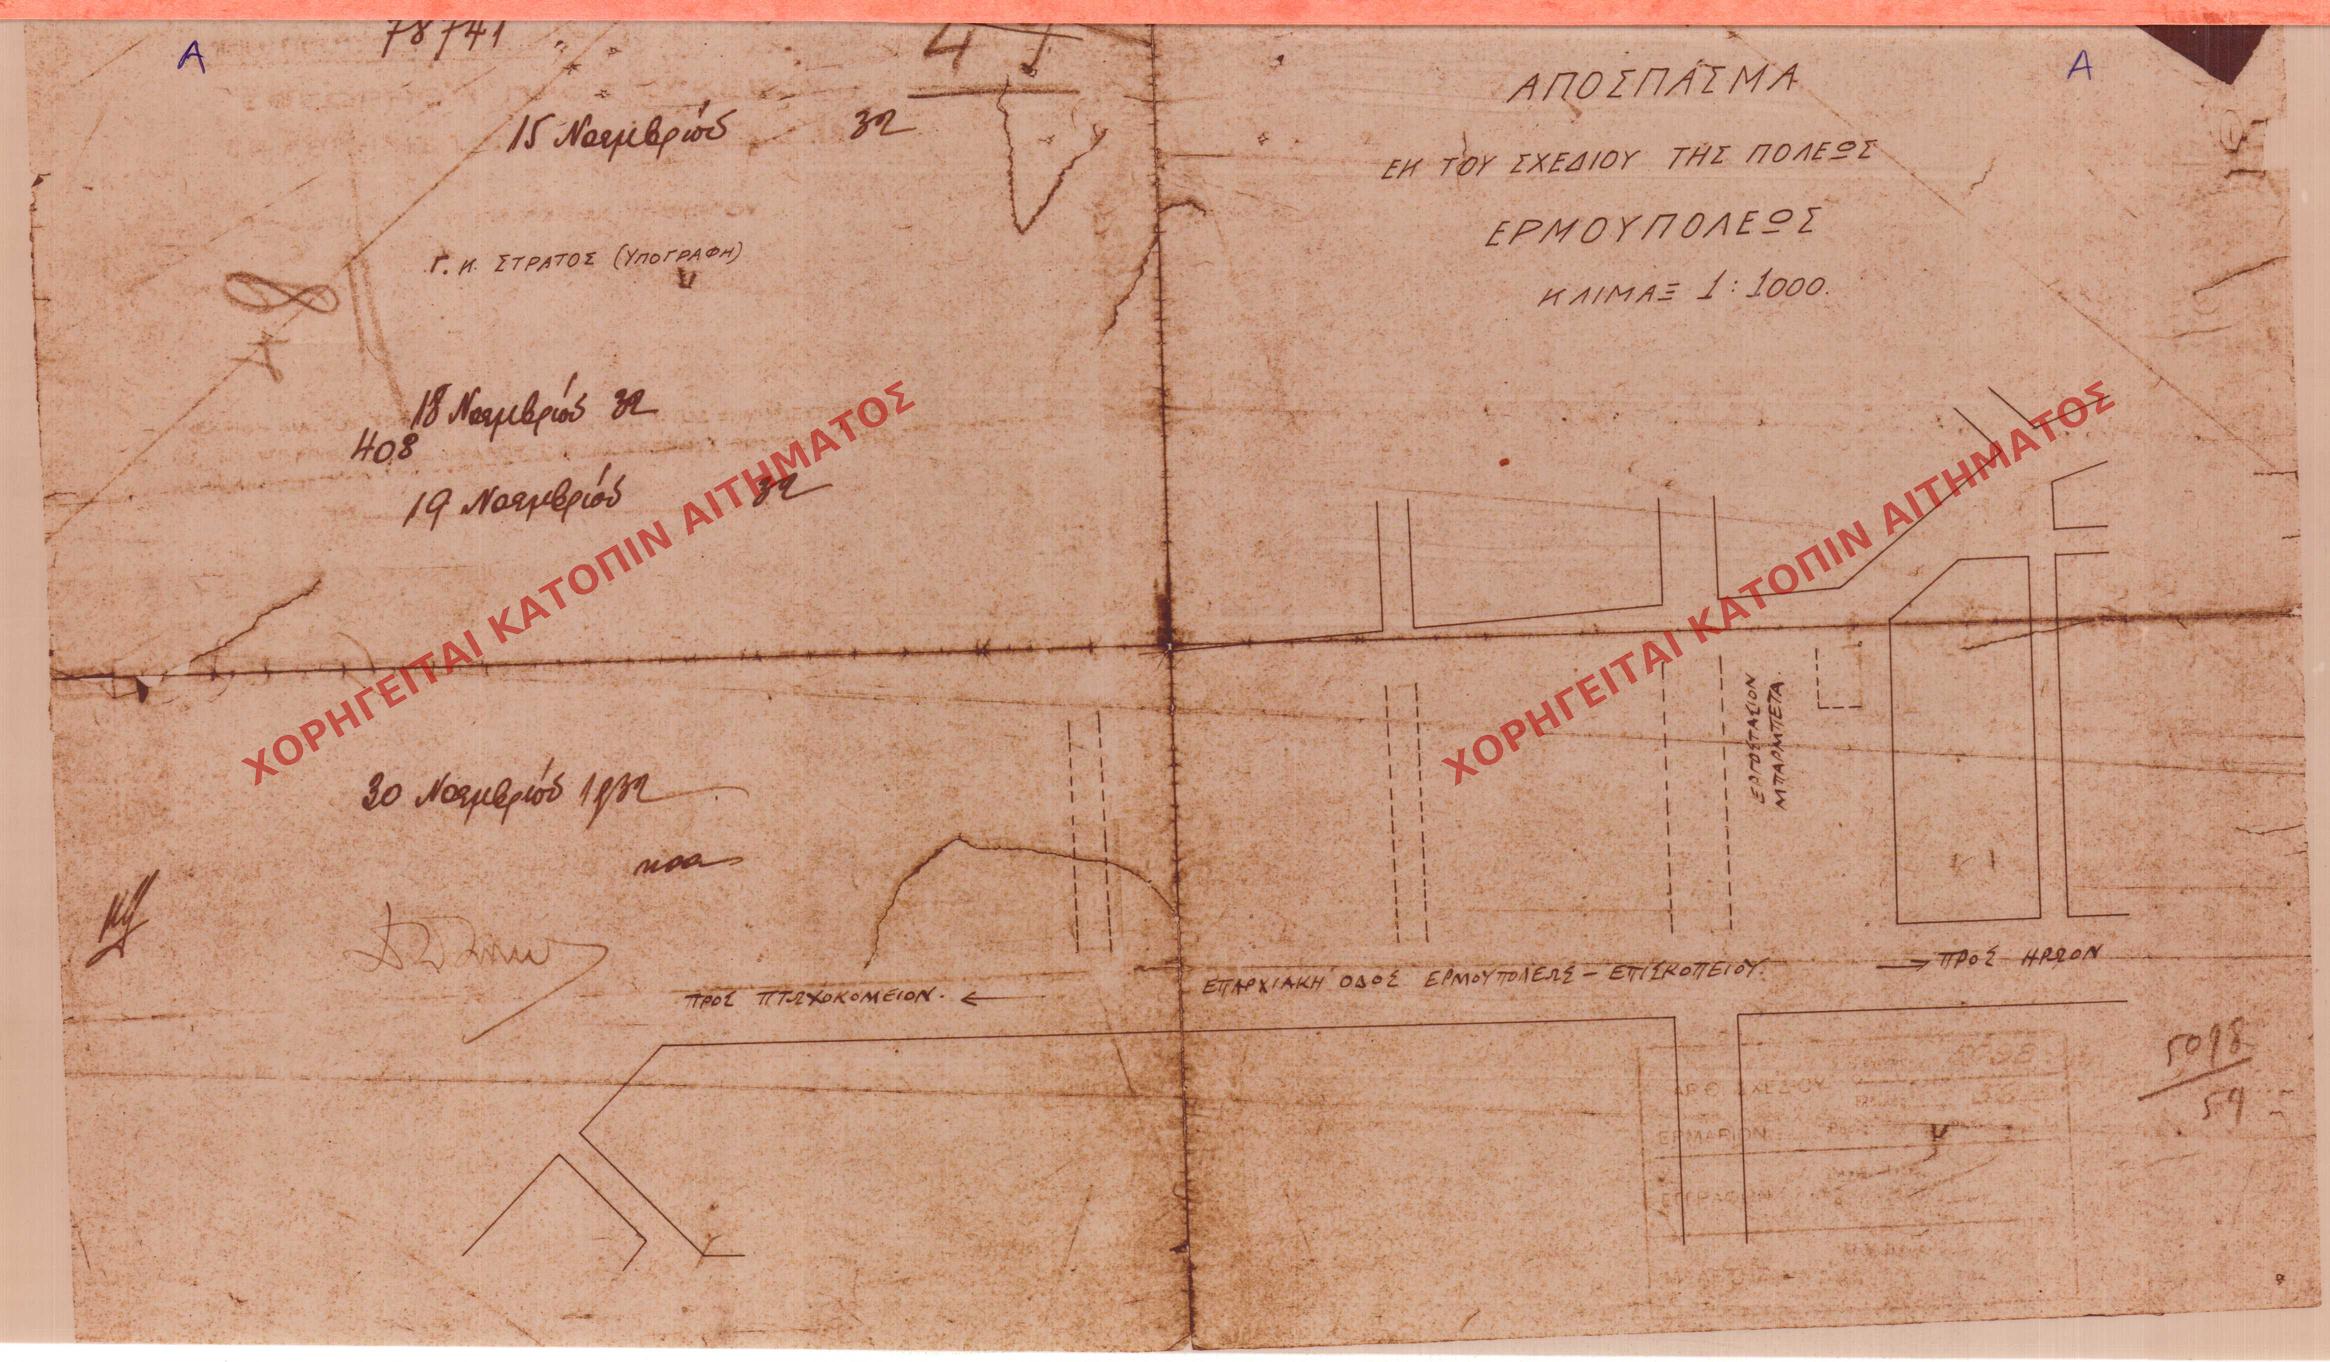 Α
78741
15 Νοεμβρίου 32
Γ. Κ. ΣΤΡΑΤΟΣ (ΥΠΟΓΡΑΦΗ)
18 Νοεμβρίου 32
408
19 Νοεμβρίου 32
30 Νοεμβρίου 1932
ΧΟΡΗΓΕΙΤΑΙ ΚΑΤΟΠΙΝ ΑΙΤΗΜΑΤΟΣ
Α
ΑΠΟΣΠΑΣΜΑ
ΕΚ ΤΟΥ ΣΧΕΔΙΟΥ ΤΗΣ ΠΟΛΕΩΣ
ΕΡΜΟΥΠΟΛΕΩΣ
ΚΛΙΜΑΞ 1:1000.
ΧΟΡΗΓΕΙΤΑΙ ΚΑΤΟΠΙΝ ΑΙΤΗΜΑΤΟΣ
ΕΡΓΟΣΤΑΣΙΟΝ
ΜΠΑΡΜΠΕΤΑ.
ΠΡΟΣ ΠΤΩΧΟΚΟΜΕΙΟΝ. ←
ΕΠΑΡΧΙΑΚΗ ΟΔΟΣ ΕΡΜΟΥΠΟΛΕΩΣ – ΕΠΙΣΚΟΠΕΙΟΥ.
→ ΠΡΟΣ ΗΡΩΟΝ
5098
59
ΑΡΙΘ. ΣΧΕΔΙΟΥ
ΕΡΜΑΡΙΟΝ